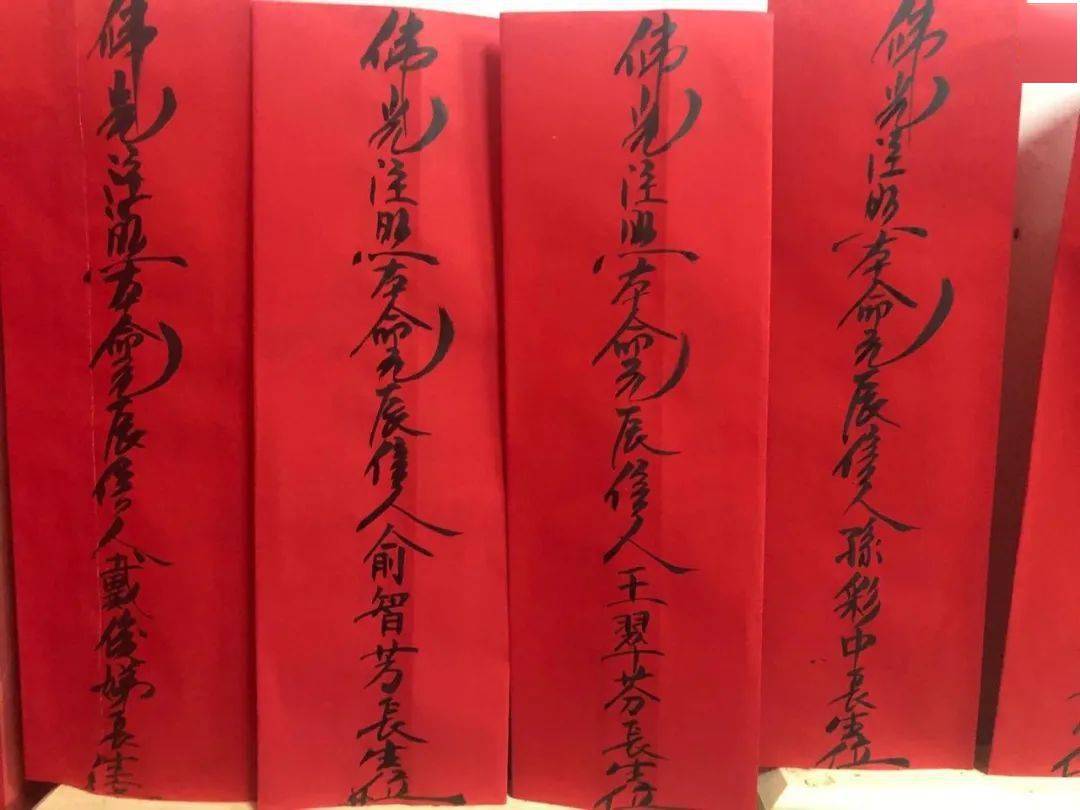 佛光注照本命元辰信人孫彩中長生位
佛光注照本命元辰信人王翠芬長生位
佛光注照本命元辰信人俞智芳長生位
佛光注照本命元辰信人戴俊娣長生